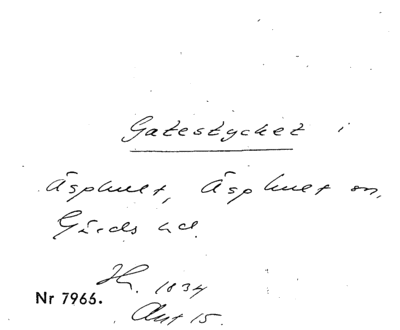 Gatestycket i
Äsphult, Äsphult sn,
Gärds hd.
1834
Nr 7966.
Akt 15.